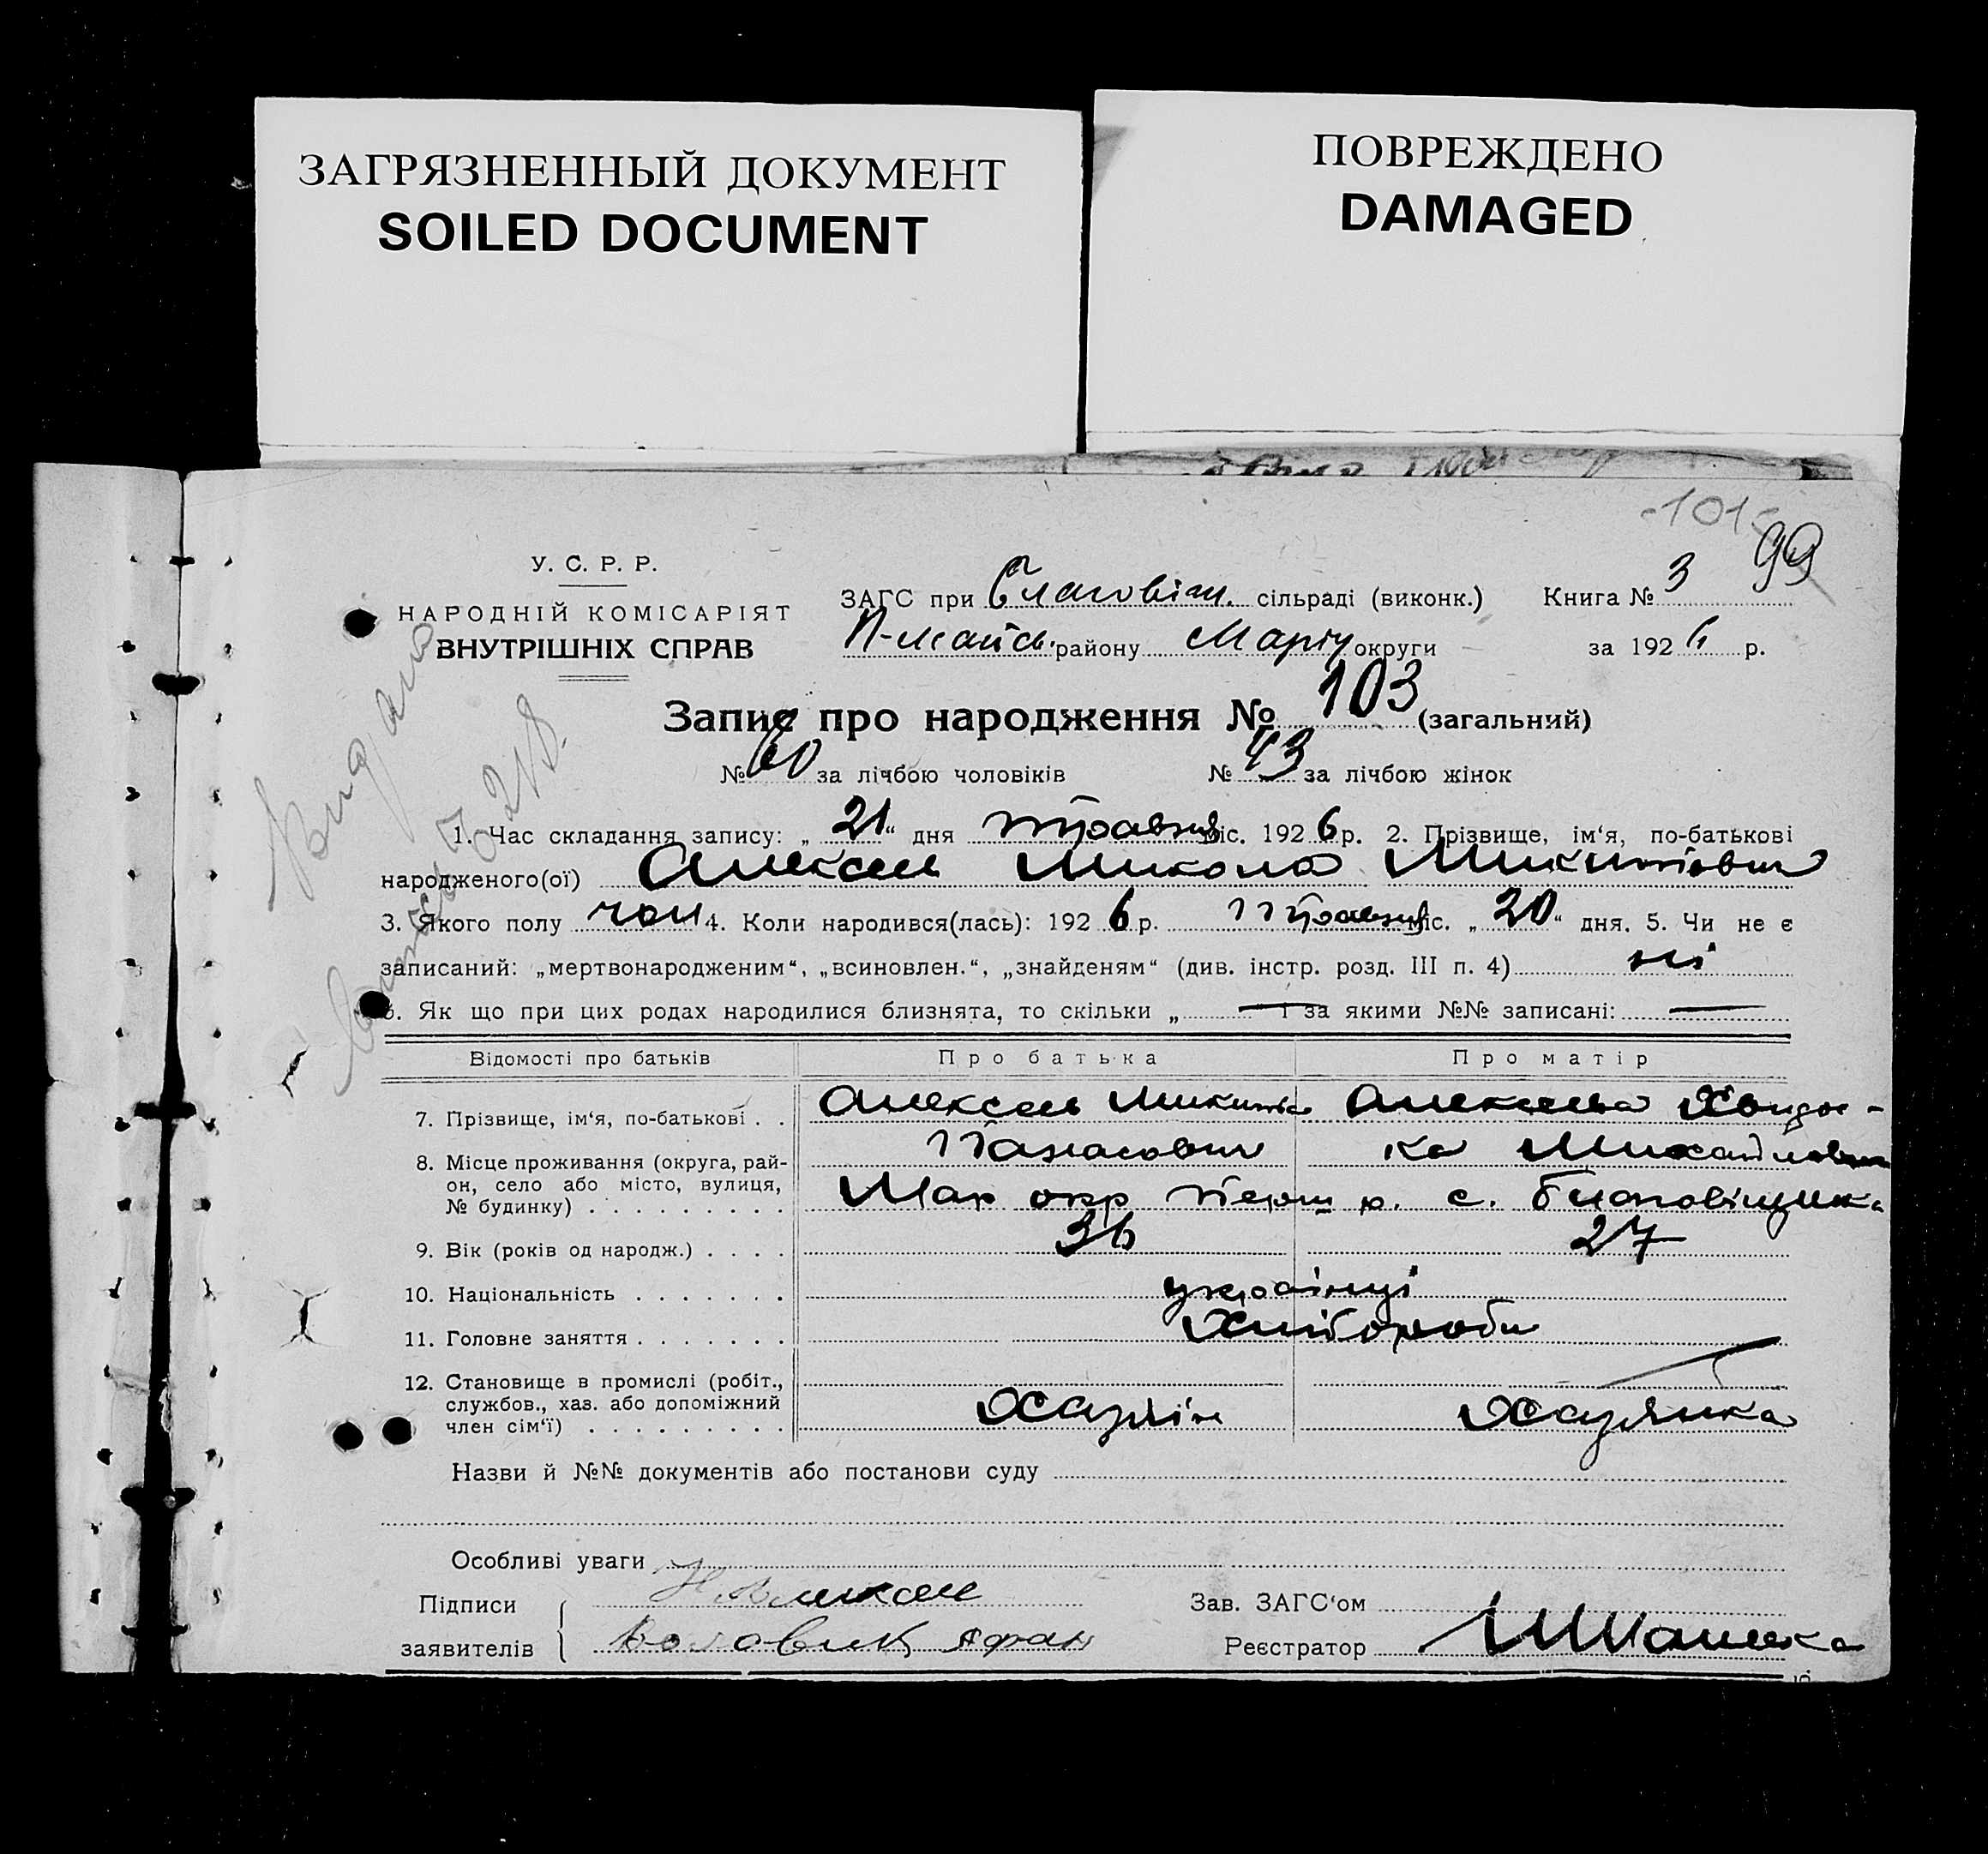 ЗАГРЯЗНЕННЫЙ ДОКУМЕНТ
SOILED DOCUMENT
ПОВРЕЖДЕНО
DAMAGED
-101-
99
У. С. Р. Р.
НАРОДНІЙ КОМІСАРІЯТ
ВНУТРІШНІХ СПРАВ
ЗАГС при Благовіщ. сільраді (виконк.) Книга № 3
П-Майсь. району Маріу округи за 1926 р.
Запис про народження № 103 (загальний)
№ 60 за лічбою чоловіків № 43 за лічбою жінок
1. Час складання запису: „21“ дня травня міс. 1926 р. 2. Прізвище, ім‘я, по-батькові
народженого(ої) Алексель Микола Микитович
3. Якого полу чол 4. Коли народився(лась): 1926 р. травня міс. „20“ дня. 5. Чи не є
записаний: „мертвонародженим“, „всиновлен.“, „знайденям“ (див. інстр. розд. III п. 4) ні
6. Як що при цих родах народилися близнята, то скільки „ — і за якими №№ записані: —
Відомості про батьків Про батька Про матір
7. Прізвище, ім‘я, по-батькові . . Алексель Микита Панасович
Михайловна
8. Місце проживання (округа, рай-
он, село або місто, вулиця,
№ будинку) . . . . . . . . . Мар окр Перш р. с. Благовіщенка
9. Вік (років од народж.) . . . . 36 27
10. Національність . . . . . . . українці
11. Головне заняття . . . . . . . Хлібороби
12. Становище в промислі (робіт.,
службов., хаз. або допоміжний
член сім‘ї) . . . . . . . . . Хазяїн Хазяйка
Назви й №№ документів або постанови суду
Особливі уваги
Підписи
заявителів
Н Алексел
Воловик Афан
Зав. ЗАГС‘ом
Реєстратор